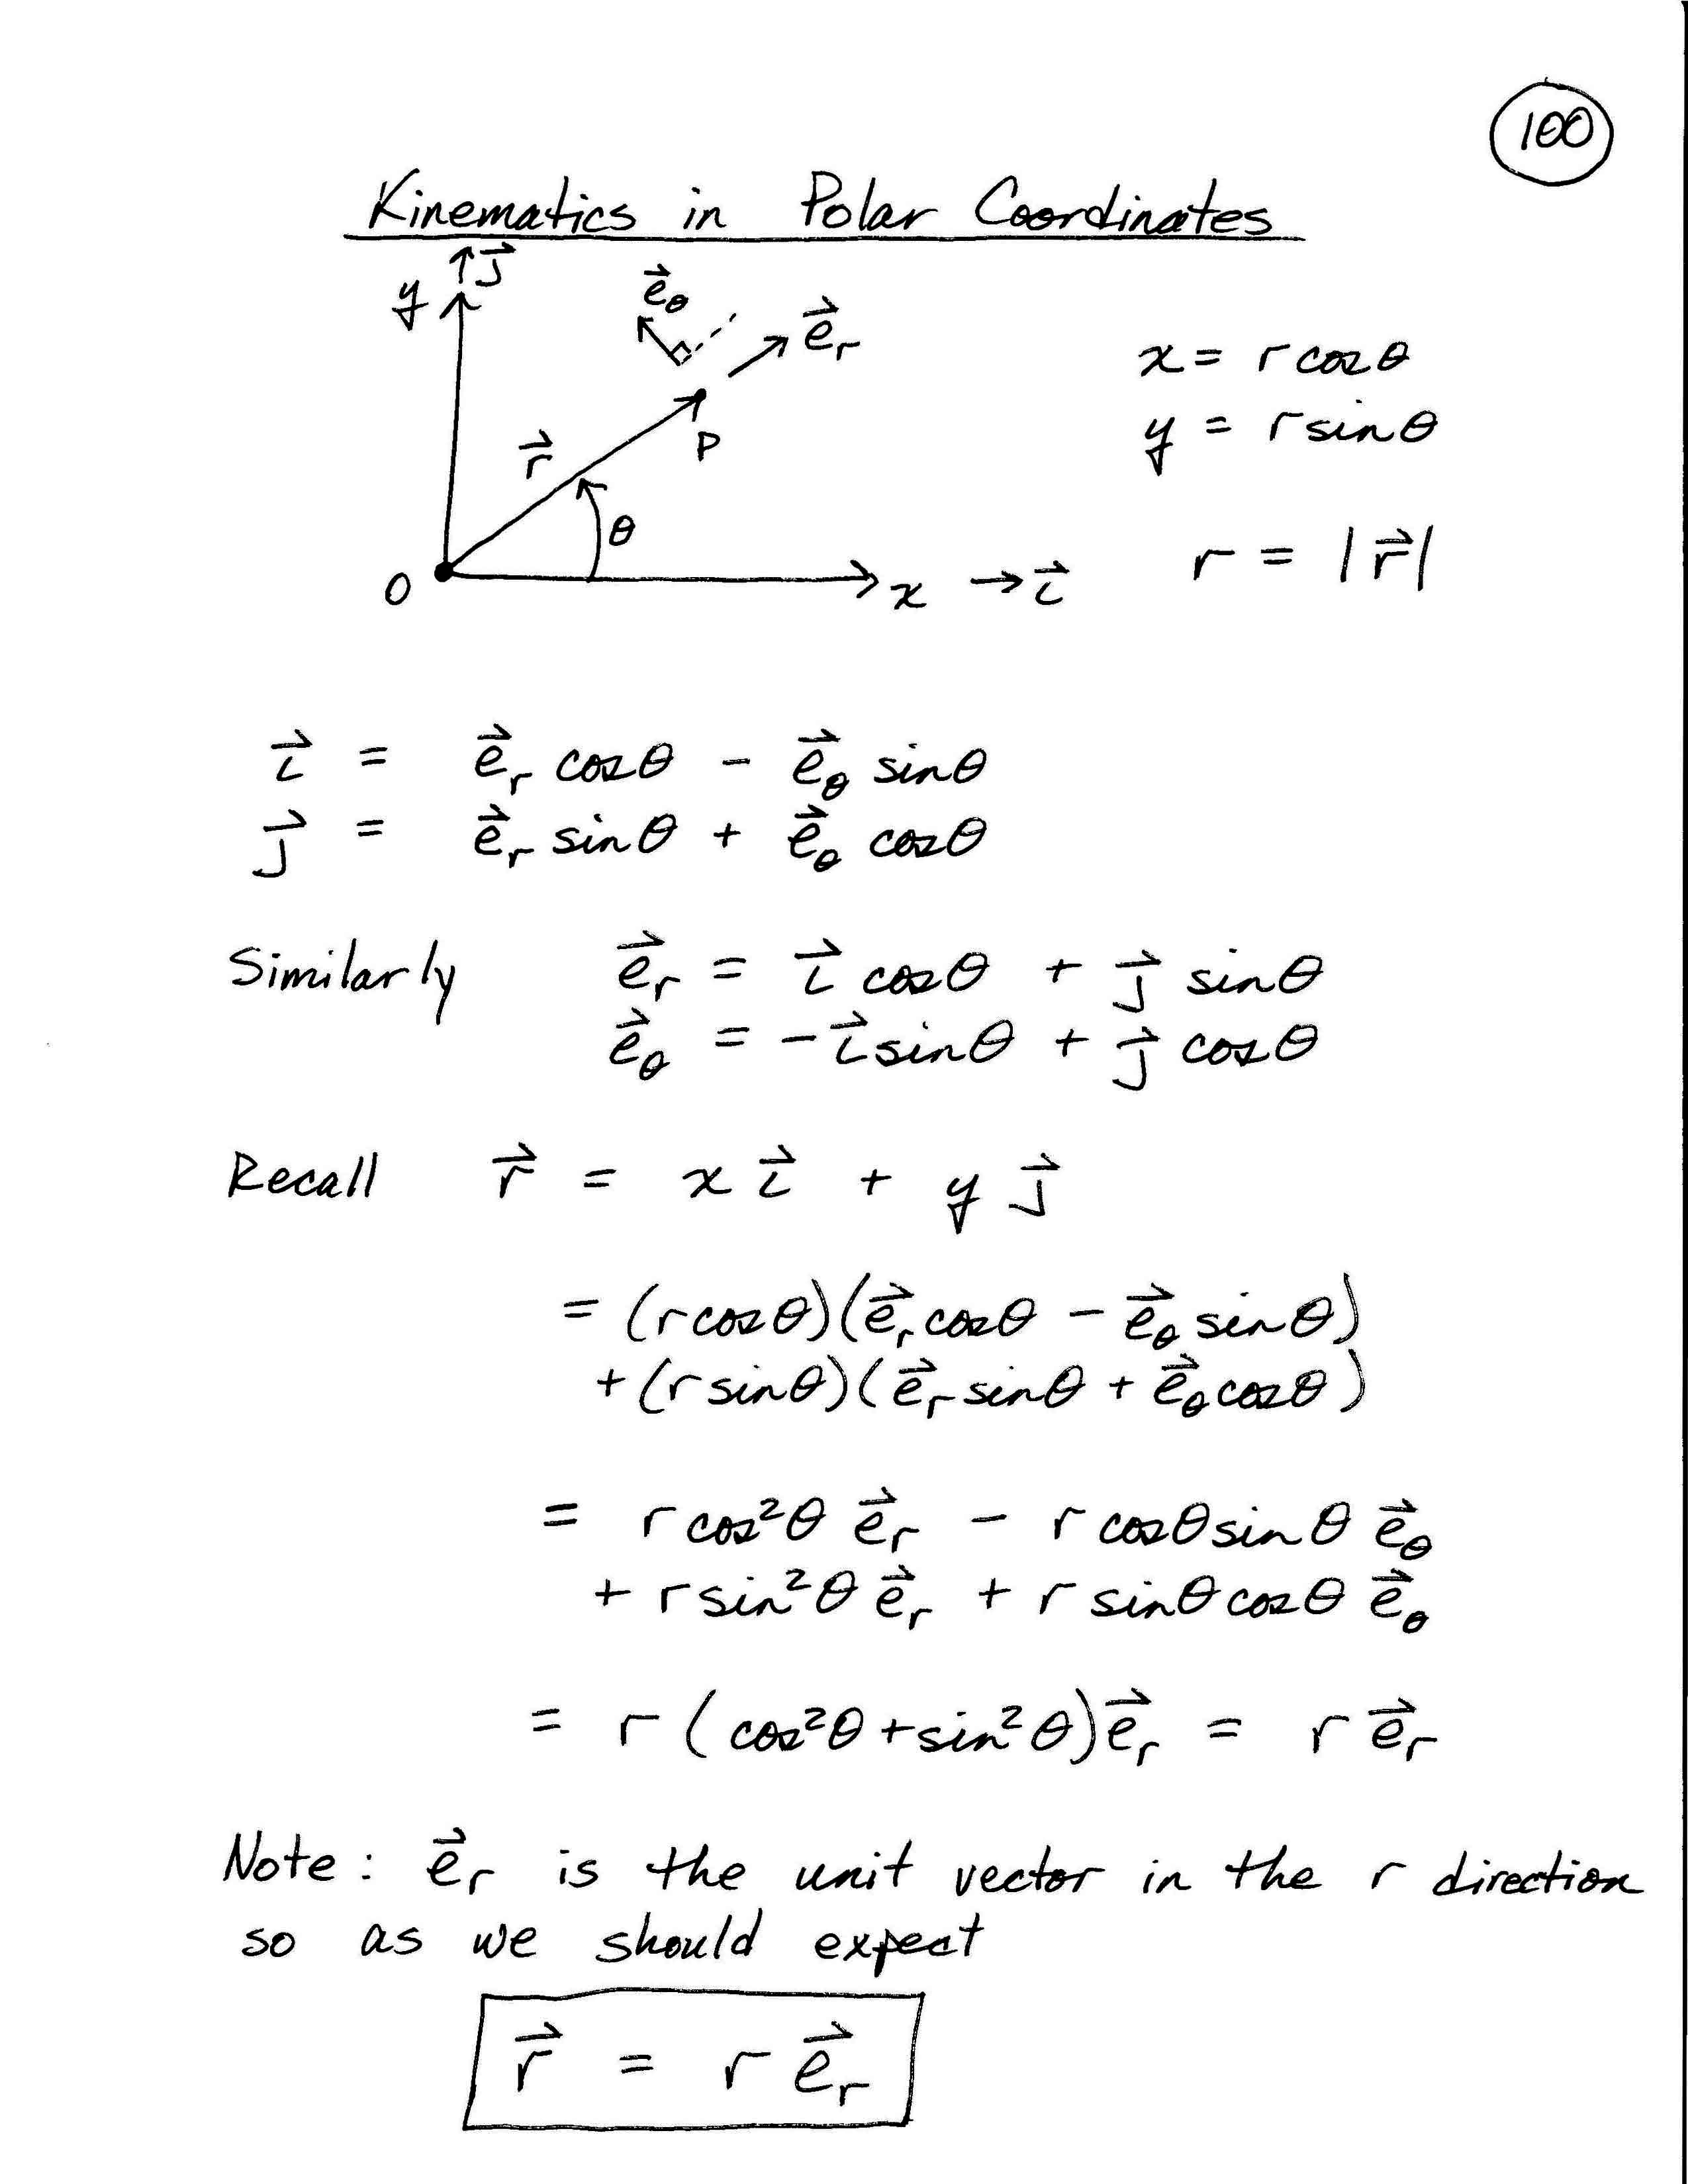 100
Kinematics in Polar Coordinates
y ↑j⃗
e⃗_θ
e⃗_r
x = r cosθ
y = r sinθ
P
r⃗
θ
r = |r⃗|
O
x → i⃗
i⃗ = e⃗_r cosθ - e⃗_θ sinθ
j⃗ = e⃗_r sinθ + e⃗_θ cosθ
Similarly e⃗_r = i⃗ cosθ + j⃗ sinθ
e⃗_θ = -i⃗ sinθ + j⃗ cosθ
Recall r⃗ = x i⃗ + y j⃗
= (r cosθ)(e⃗_r cosθ - e⃗_θ sinθ)
+ (r sinθ)(e⃗_r sinθ + e⃗_θ cosθ)
= r cos²θ e⃗_r - r cosθ sinθ e⃗_θ
+ r sin²θ e⃗_r + r sinθ cosθ e⃗_θ
= r (cos²θ + sin²θ) e⃗_r = r e⃗_r
Note: e⃗_r is the unit vector in the r direction
so as we should expect
r⃗ = r e⃗_r